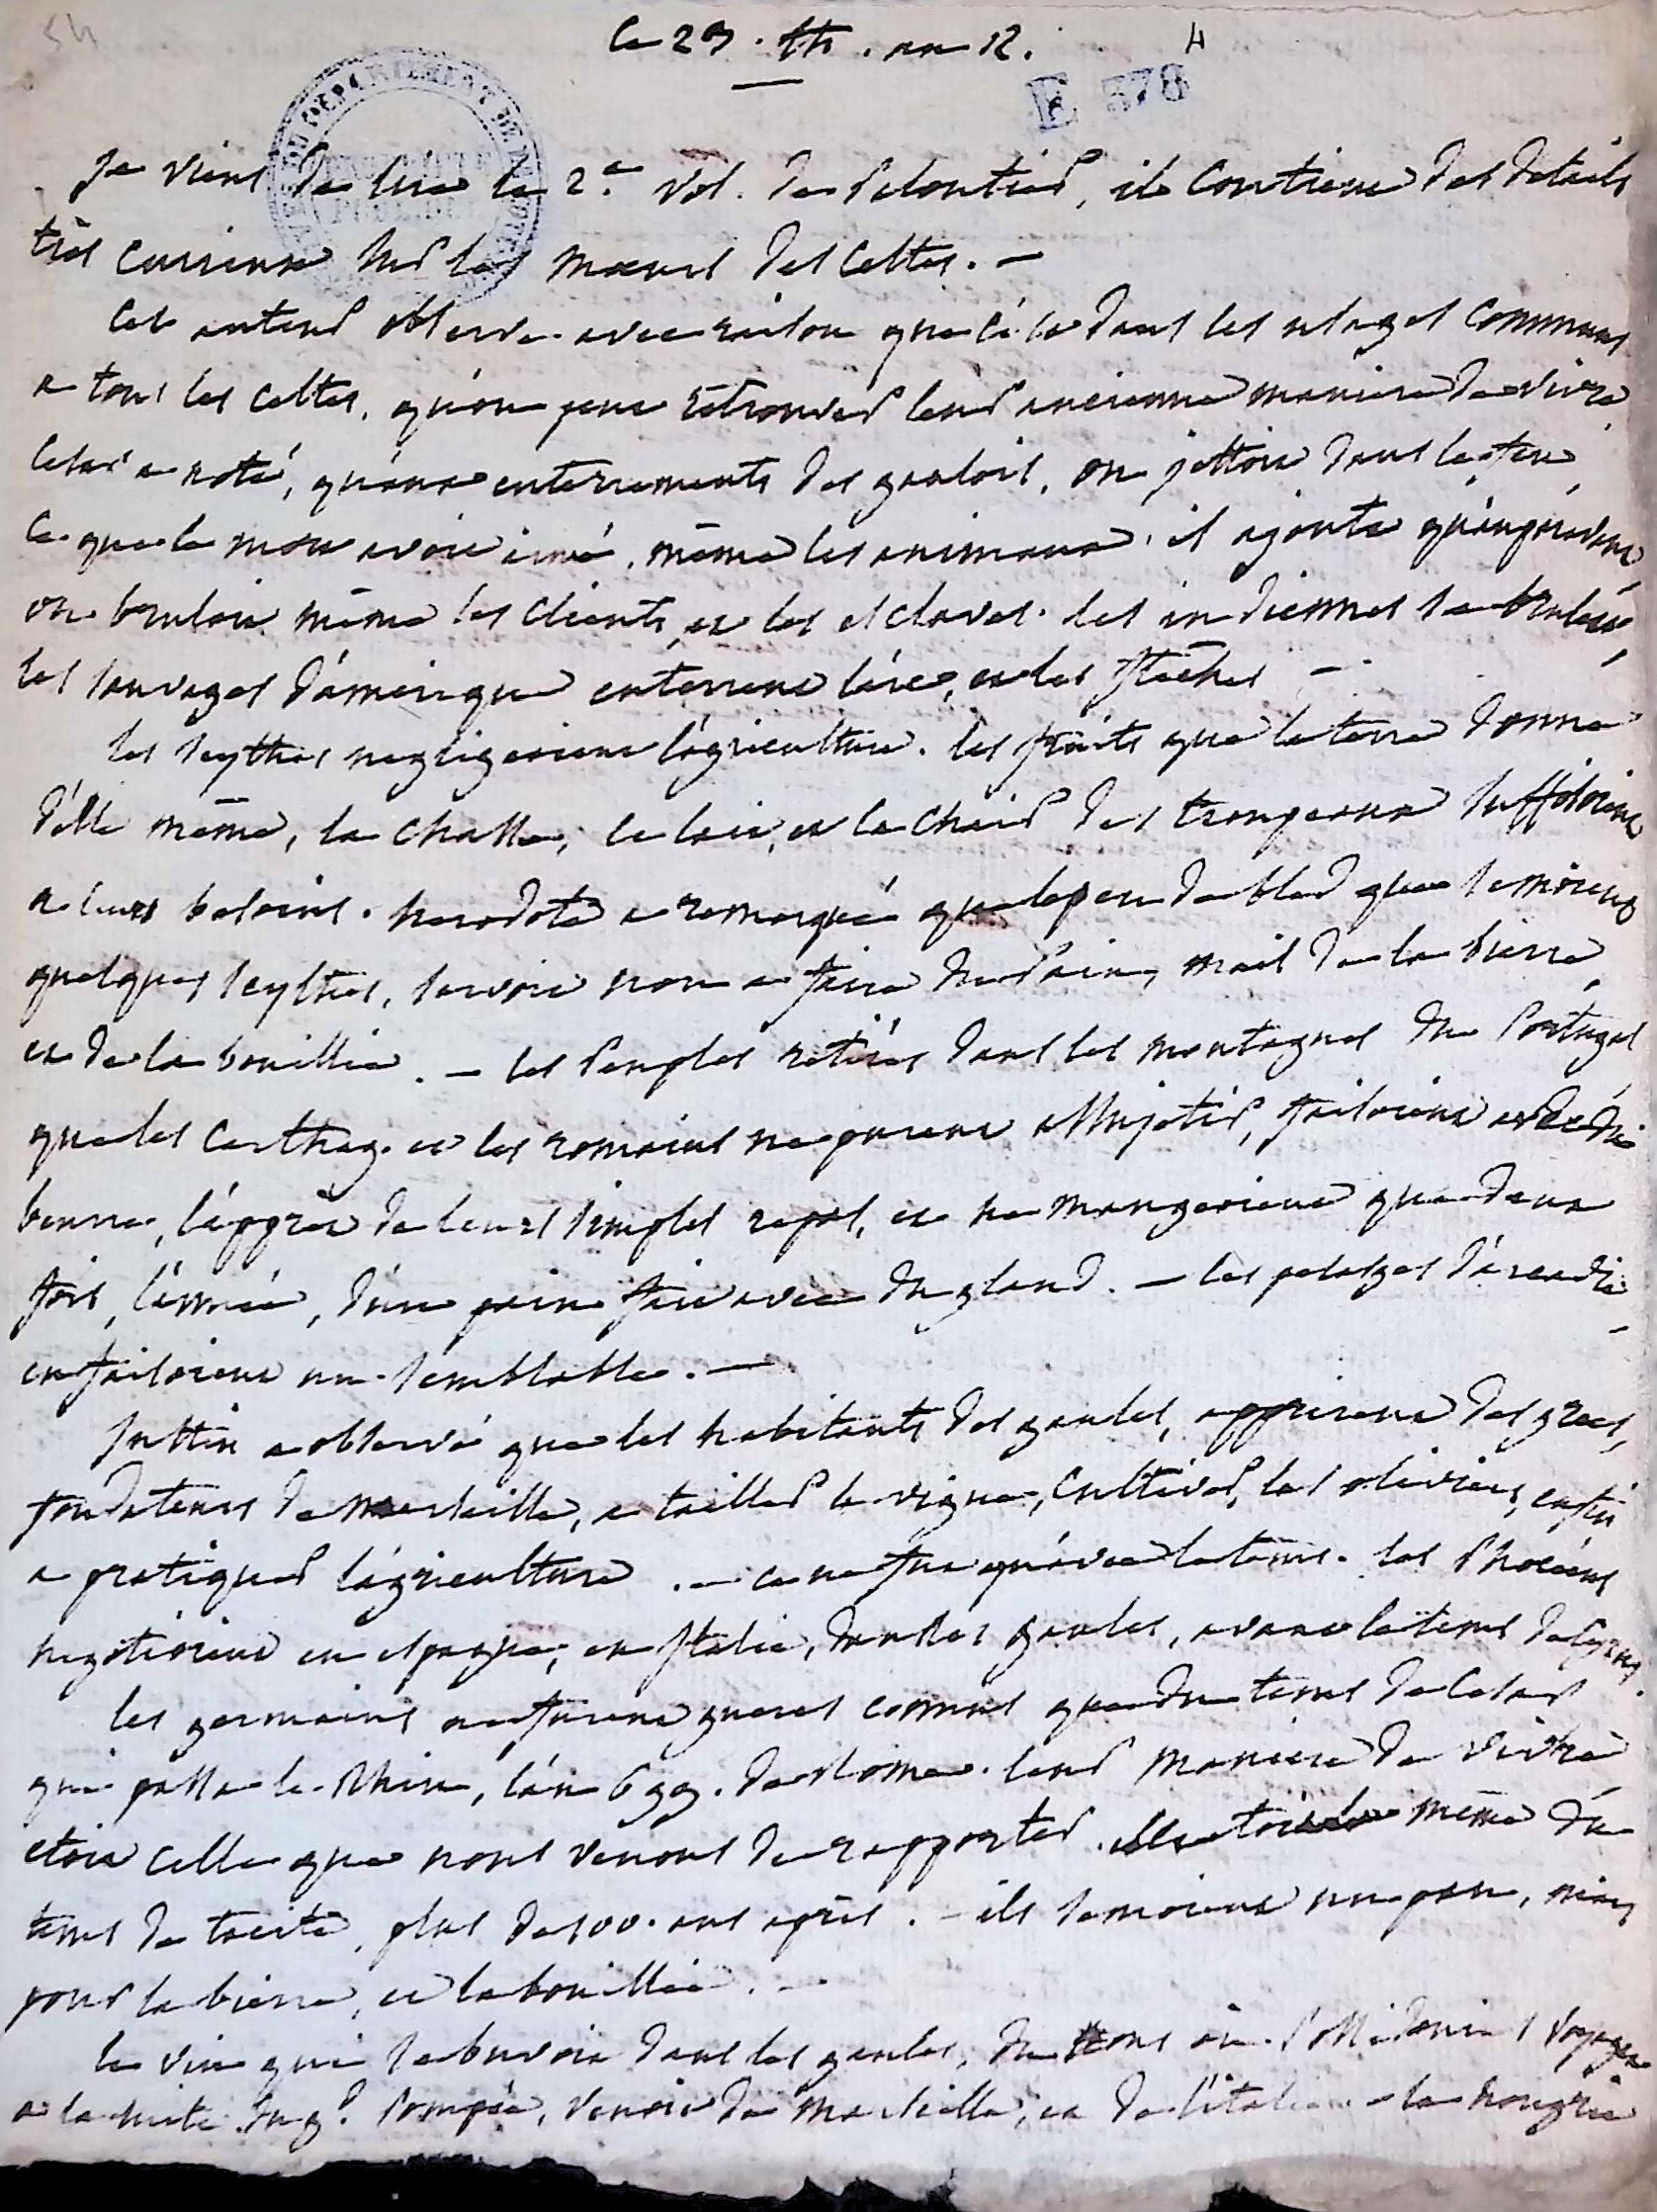 54
Ce 29. th. an 12.
4
E 378
Je viens de lire le 2.e vol. de Peloutier, il contient des détails
très curieux sur les mœurs des Celtes. —
Cet auteur observe avec raison que c'est dans les usages communs
a tous les celtes, qu'on peut retrouver leur ancienne maniere de vivre
César a noté, qu'aux enterrements des gaulois, on jettoit dans le feu
ce que le mort avoit aimé, même les animaux, il ajoute qu'auparavant
on bruloit même les clients, et les esclaves. les indiennes se brulent,
les sauvages d'amerique enterrent l'arc, et les flèches —
les scythes negligeoient l'agriculture. les fruits que la terre donne
d'elle même, la chasse, le lait, et la chair des troupeaux suffisoient
a leurs besoins. herodote a remarqué que le peu de bled que semoient
quelques scythes, servoit non a faire du pain, mais de la bierre,
et de la bouillie. — les peuples retirés dans les montagnes du Portugal
que les Carthag. et les romains ne purent assujetir, faisoient avec du
beurre, l'apprêt de leurs simples repas, et ne mangeoient que deux
fois, l'année, d'un pain fait avec du gland. — les pelasges d'arcadie
en faisoient un semblable. —
Justin a observé que les habitants des gaules, apprirent des grecs,
fondateurs de Marseille, a tailler la vigne, cultiver les oliviers, enfin
a pratiquer l'agriculture. — ce ne fut qu'avec le tems. les Phocéens
negotioient en espagne, en Italie, dans les gaules, avant le tems de Cyrus.
les germains ne furent gueres connus que du tems de César
qui passa le Rhin, l'an 699. de Rome. leur maniere de vivre
etoit celle que nous venons de rapporter. même du
tems de tacite, plus de 100. ans après. — ils semoient un peu, mais
pour la bierre, et la bouillie. —
le vin qui se buvoit dans les gaules, du tems où Possidonius voyagea
a la suite du g.d Pompée, venoit de Marseille, et de l'italie — la hongrie